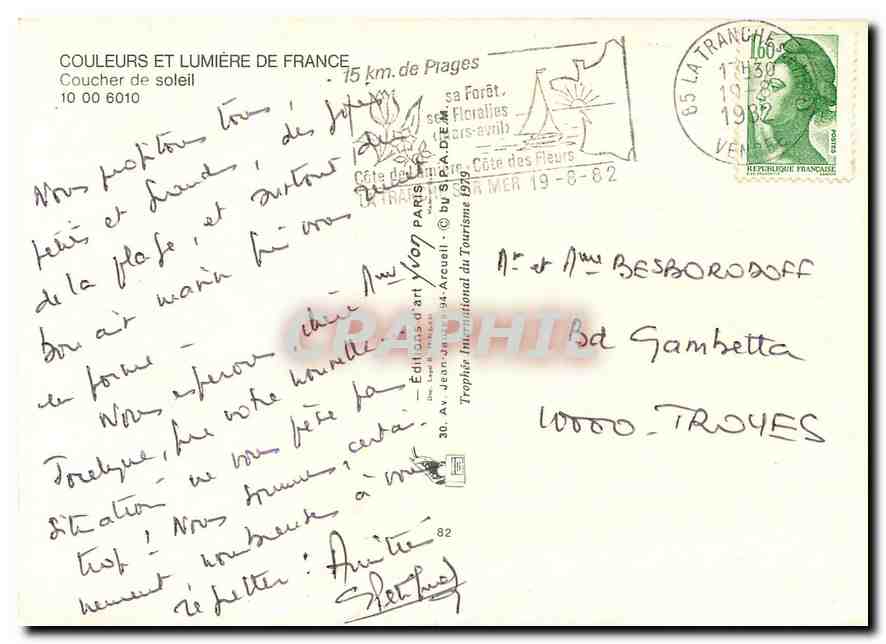 COULEURS ET LUMIÈRE DE FRANCE
Coucher de soleil
10 00 6010
15 km. de Plages
sa Forêt,
ses Floralies
(Mars-avril)
Côte de Lumière - Côte des Fleurs
LA TRANCHE SUR MER 19-8-82
85 LA TRANCHE
17H30
19-8
1982
VENDEE
1,60
POSTES
REPUBLIQUE FRANÇAISE
Nous profitons tous,
petits et grands, des
de la plage, et surtout du
bon air marin qui vous remet
en forme -
Nous espérons, chère Mme
Jocelyne, que votre nouvelle
situation ne vous pèse pas
trop ! Nous sommes, certai-
nement nombreuses à vous
regretter ! Amitié
Mr et Mme BESBORODOFF
Bd Gambetta
10000 - TROYES
— Éditions d'art Yvon PARIS
30. Av. Jean-Jaurès-94-Arcueil - © by S.P.A.D.E.M.
Trophée International du Tourisme 1979
82
CRAPHIL